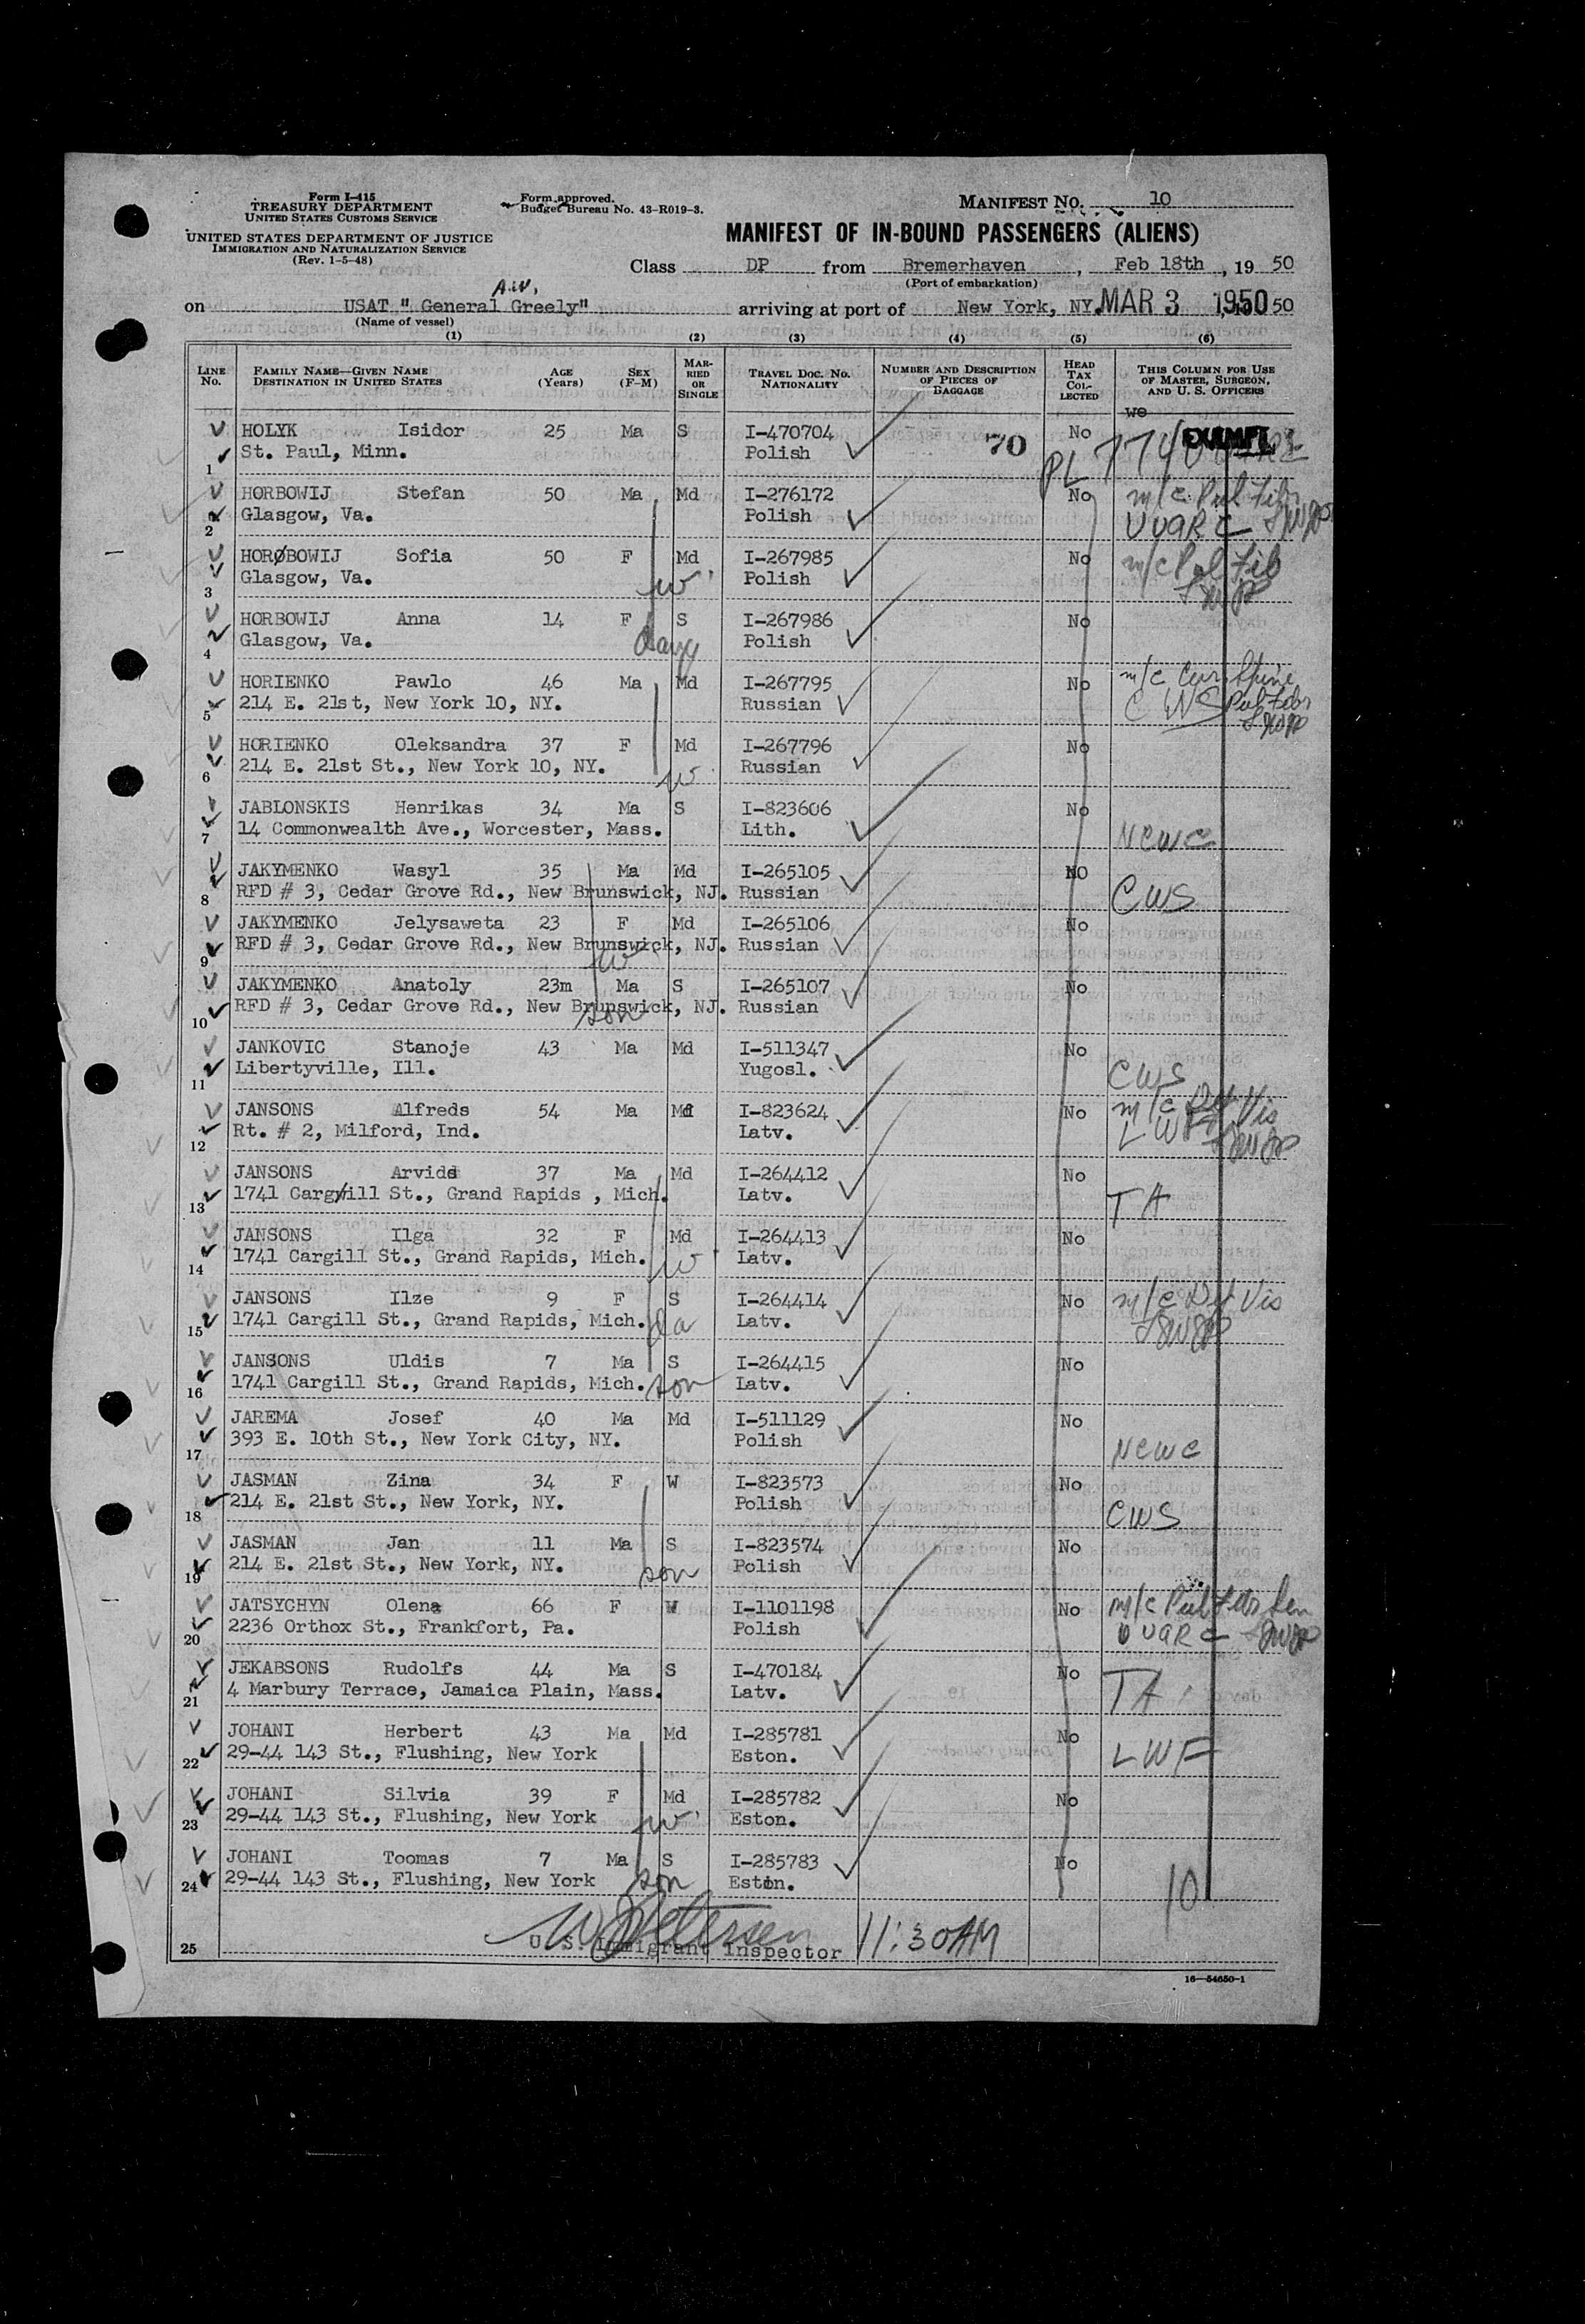 Form I-415
TREASURY DEPARTMENT
UNITED STATES CUSTOMS SERVICE
UNITED STATES DEPARTMENT OF JUSTICE
IMMIGRATION AND NATURALIZATION SERVICE
(Rev. 1-5-48)
Form approved.
Budget Bureau No. 43-R019-3.
MANIFEST NO. 10
MANIFEST OF IN-BOUND PASSENGERS (ALIENS)
Class DP from Bremerhaven, Feb 18th, 19 50
(Port of embarkation)
A.W.
on USAT "General Greely" arriving at port of New York, NY. MAR 3 1950 50
(Name of vessel)
(1) (2) (3) (4) (5) (6)
LINE No.
FAMILY NAME—GIVEN NAME
DESTINATION IN UNITED STATES
AGE (Years)
SEX (F-M)
MARRIED OR SINGLE
TRAVEL DOC. NO.
NATIONALITY
NUMBER AND DESCRIPTION OF PIECES OF BAGGAGE
HEAD TAX COLLECTED
THIS COLUMN FOR USE OF MASTER, SURGEON, AND U. S. OFFICERS
we
HOLYK Isidor 25 Ma S I-470704 70 No PL 774
1 St. Paul, Minn. Polish
HORBOWIJ Stefan 50 Ma Md I-276172 No m/c
2 Glasgow, Va. Polish UUARC
HORØBOWIJ Sofia 50 F Md I-267985 No m/c
3 Glasgow, Va. w Polish
HORBOWIJ Anna 14 F S I-267986 No
4 Glasgow, Va. daug Polish
HORIENKO Pawlo 46 Ma Md I-267795 No m/c Cur. Spine
5 214 E. 21st, New York 10, NY. Russian CWS
HORIENKO Oleksandra 37 F Md I-267796 No
6 214 E. 21st St., New York 10, NY. w Russian
JABLONSKIS Henrikas 34 Ma S I-823606 No
7 14 Commonwealth Ave., Worcester, Mass. Lith. NCWC
JAKYMENKO Wasyl 35 Ma Md I-265105 NO
8 RFD # 3, Cedar Grove Rd., New Brunswick, NJ. Russian CWS
JAKYMENKO Jelysaweta 23 F Md I-265106 No
9 RFD # 3, Cedar Grove Rd., New Brunswick, NJ. Russian
w
JAKYMENKO Anatoly 23m Ma S I-265107 No
10 RFD # 3, Cedar Grove Rd., New Brunswick, NJ. Russian
son
JANKOVIC Stanoje 43 Ma Md I-511347 No
11 Libertyville, Ill. Yugosl. CWS
JANSONS Alfreds 54 Ma Md I-823624 No m/c Def Vis
12 Rt. # 2, Milford, Ind. Latv. LWF
JANSONS Arvids 37 Ma Md I-264412 No
13 1741 Cargill St., Grand Rapids , Mich. Latv. TA
JANSONS Ilga 32 F Md I-264413 No
14 1741 Cargill St., Grand Rapids, Mich. w Latv.
JANSONS Ilze 9 F S I-264414 No m/c Def Vis
15 1741 Cargill St., Grand Rapids, Mich. da Latv.
JANSONS Uldis 7 Ma S I-264415 No
16 1741 Cargill St., Grand Rapids, Mich. son Latv.
JAREMA Josef 40 Ma Md I-511129 No
17 393 E. 10th St., New York City, NY. Polish NCWC
JASMAN Zina 34 F W I-823573 No
18 214 E. 21st St., New York, NY. Polish CWS
JASMAN Jan 11 Ma S I-823574 No
19 214 E. 21st St., New York, NY. son Polish
JATSYCHYN Olena 66 F W I-1101198 No m/c
20 2236 Orthox St., Frankfort, Pa. Polish UUARC
JEKABSONS Rudolfs 44 Ma S I-470184 No
21 4 Marbury Terrace, Jamaica Plain, Mass. Latv. TA
JOHANI Herbert 43 Ma Md I-285781 No
22 29-44 143 St., Flushing, New York Eston. LWF
JOHANI Silvia 39 F Md I-285782 No
23 29-44 143 St., Flushing, New York w Eston.
JOHANI Toomas 7 Ma S I-285783 No
24 29-44 143 St., Flushing, New York son Eston. 10
25 U. S. Immigrant Inspector 11:30AM
16—54650-1